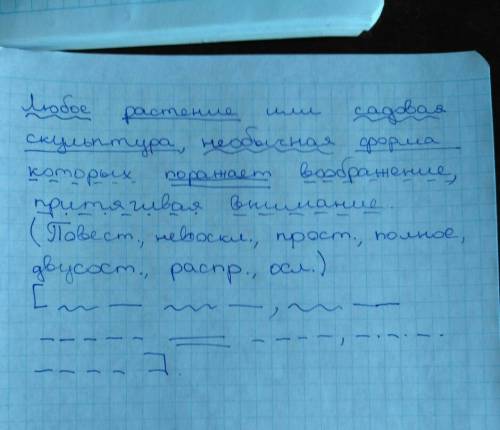 Любое растение или садовая
скульптура, необычная форма
которых поражает воображение,
притягивая внимание.
(Повест., невоскл., прост., полное,
двусост., распр., осл.)